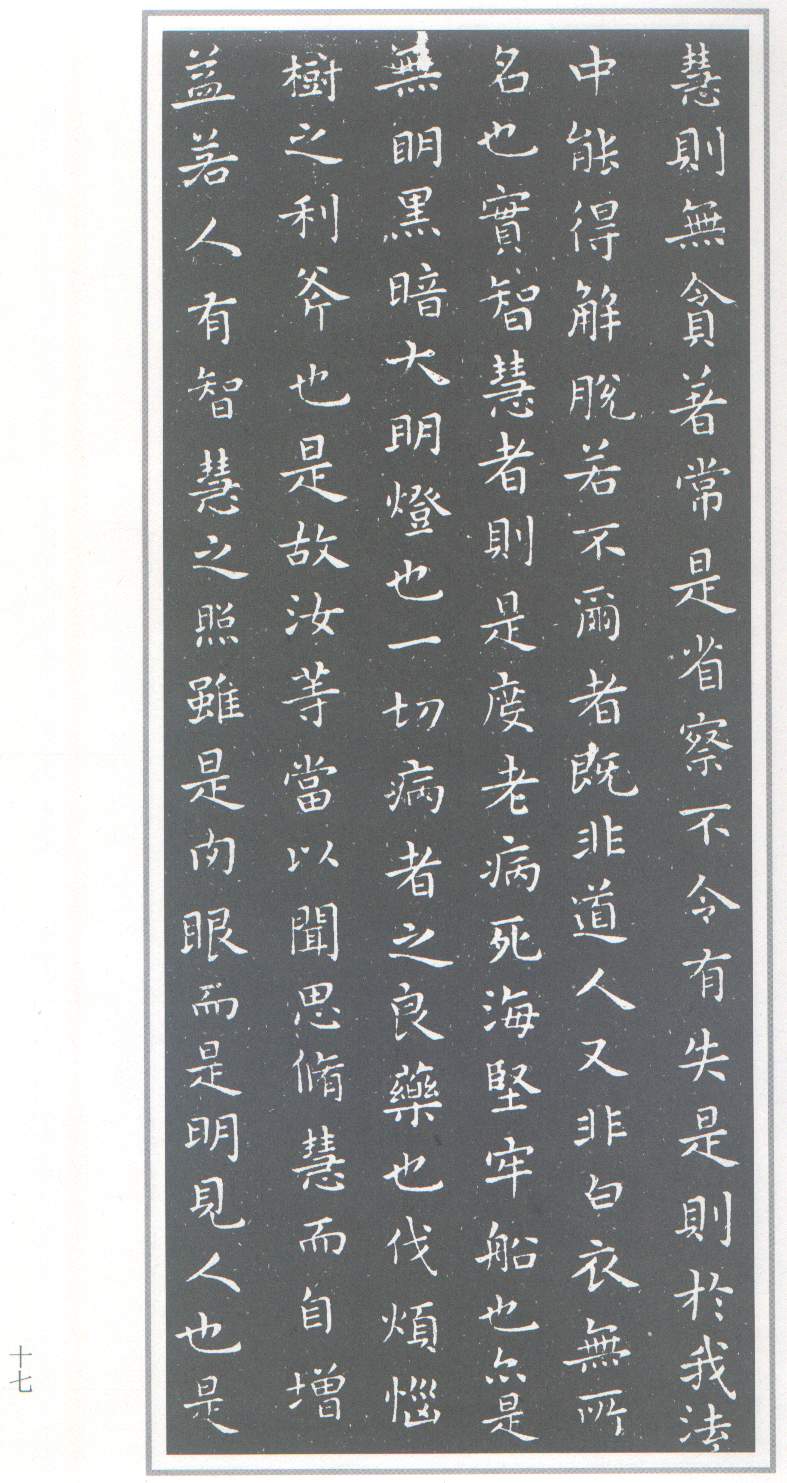 慧則無貪著常是省察不令有失是則於我法
中能得解脫若不爾者既非道人又非白衣無所
名也實智慧者則是度老病死海堅牢船也亦是
無明黑暗大明燈也一切病者之良藥也伐煩惱
樹之利斧也是故汝等當以聞思脩慧而自增
益若人有智慧之照雖是肉眼而是明見人也是
十七